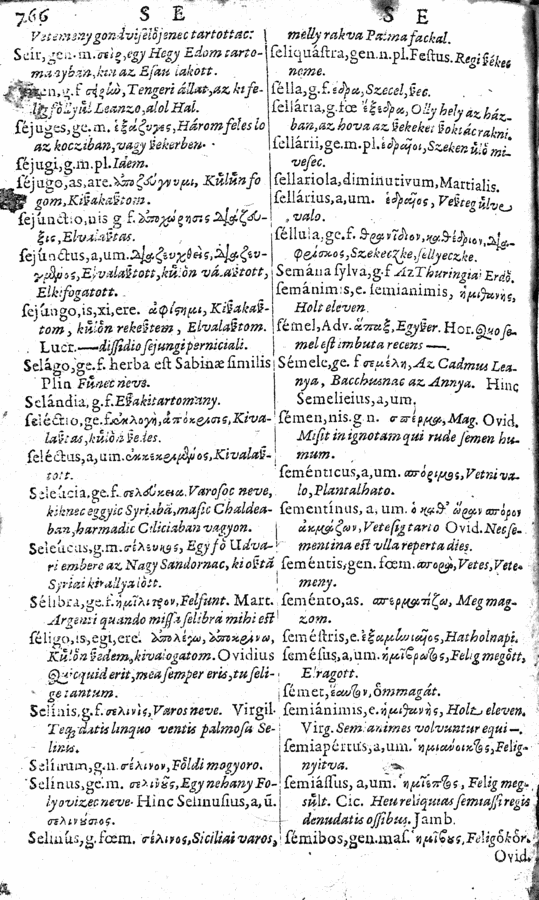 766 S E S E
Vetemeny gondviselöjenec tartottac.
Seir, gen. m. σεὶρ, egy Hegy Edom tarto-
manyban, kin az Esau lakott.
g. f. Tengeri állat, az ki fe-
Leanzo, alol Hal.
séjuges, ge. m. ἑξάζυγες, Három feles lo
az kocziban, vagy ßekerben.
séjugi, g. m. pl. Idem.
séjugo, as, are. ἀποζεύγνυμι, Külün fo
gom, Kißakaßtom.
sejúnctio, nis g f. ἀποχώρησις διάζευ-
ξις, Elvalaßtas.
sejúnctus, a, um. διαζευχθεὶς, διαζευ-
Elvalaßtott, külön válaßtott,
Elkifogatott.
sejungo, is, xi, ere. ἀφίςημι, Kißakaß-
tom, külön rekeßtem, Elvalaßtom.
Lucr. —dissidio sejungi perniciali.
Selâgo, ge. f. herba est Sabinæ similis
Plin Fünec neve.
Selándia, g. f. Eßakitartomany.
seléctio, ge. f. ἐκλογὴ, ἀπόκρισις, Kiva-
laßtas, külön ßedes.
seléctus, a, um. Kivalaß-
tott.
Seleúcia, ge. f. σελεύκεια. Varosoc neve,
kiknec eggyic Syriábā, masic Chaldea-
ban, harmadic Ciliciaban vagyon.
Seleúcus, g. m. σέλευκος, Egy fö Udva-
ri embere az Nagy Sandornac, ki oßtā
Syriai kirallya lött.
Sélibra, ge. f. ἡμίλιτρον, Felfunt. Mart.
Argenti quando missa selibra mihi est
séligo, is, egi, ere. ἀπολέγω, ἀποκρίνω,
Külön ßedem, kivalogatom. Ovidius
Quicquid erit, mea semper eris, tu seli-
ge tantum.
Selínis, g. f. σελινὶς, Varos neve. Virgil.
Teq; datis linquo ventis palmosa Se-
linis.
Selínum, g. n. σέλινον, Földi mogyoro.
Selínus, ge. m. σελινοῦς, Egy nehany Fo-
lyovizec neve. Hinc Selinusius, a, ū.
σελινούσιος.
Selinús, g. fœm. σέλινος, Siciliai varos,
melly rakva Palma fackal.
seliquástra, gen. n. pl. Festus. Regi ßékec
neme.
sella, g. f. ἕδρα, Szecel, ßec.
sellária, g. fœ ἐξέδρα, Olly hely az ház-
ban, az hova az ßekeket ßoktác rakni.
sellárii, ge. m. pl. ἑδραῖοι, Szeken ülö mi-
vesec.
sellariola, diminutivum, Martialis.
sellárius, a, um. ἑδραῖος, Veßteg ülve
valo.
séllula, ge. f. θρανίδιον, καθέδριον, δια-
φρίσκος, Szekeczke, sellyeczke.
Semâna sylva, g. f Az Thuringiai Erdö.
semánimis, e. semianimis, ἡμιθανὴς,
Holt eleven.
sémel, Adv. ἅπαξ, Egyßer. Hor. Quo se-
mel est imbuta recens —.
Sémele, ge. f σεμέλη, Az Cadmus Lea-
nya, Bacchusnac az Annya. Hinc
Semeleius, a, um.
sémen, nis. g n. σπέρμα, Mag. Ovid.
Misit in ignotam qui rude semen hu-
mum.
seménticus, a, um. σπόριμος, Vetni va-
lo, Plantalhato.
sementinus, a, um. ὁ καθ' ὥραν σπόρου
ἀκμάζων, Vetesig tario Ovid. Nec se-
mentina est ulla reperta dies.
seméntis, gen. fœm. σπορὰ, Vetes, Vete-
meny.
seménto, as. σπερματίζω, Meg mag-
zom.
seméstris, e. ἑξαμηνιαῖος, Hatholnapi.
semésus, a, um. ἡμίβρωτος, Felig megött,
Elragott.
sémet, ἑαυτὸν, ömmagát.
semiánimis, e. ἡμιθανὴς, Holt eleven.
Virg. Semianimes volvuntur equi —.
semiapértus, a, um. ἡμιάνοικτος, Felig-
nyitva.
semiássus, a, um. ἡμίεπτος, Felig meg-
sült. Cic. Heu reliquias semiassi regis
denudatis ossibus. Jamb.
sémibos, gen. mas. ἡμίβους, Felig ökör.
Ovid.